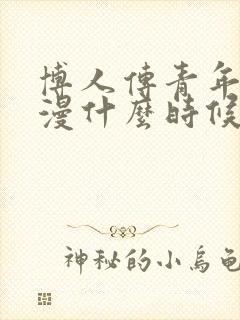 博人傳青年
漫什麼時候
神秘的小烏龜